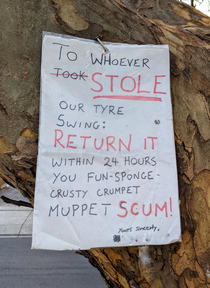 TO WHOEVER
TOOK STOLE
OUR TYRE
SWING:
RETURN IT
WITHIN 24 HOURS
YOU FUN-SPONGE-
CRUSTY CRUMPET
MUPPET SCUM!
Yours Sincerely,